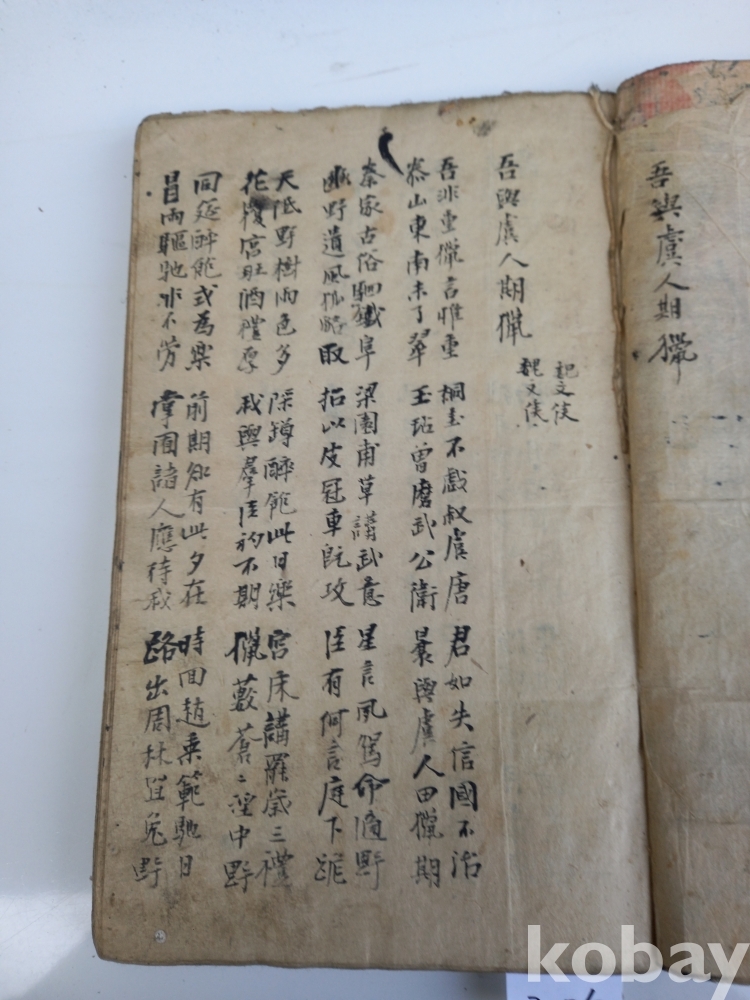 吾與虞人期獵
吾與虞人期獵
記文侯
魏文侯
吾非重獵言惟重
泰山東南未了翠
桐圭不戱叔虞唐
玉玷曾磨武公衛
君如失信國不治
曩與虞人田獵期
秦家古俗駟鐵阜
豳野遺風狐貉取
梁園甫草講武意
招以皮冠車既攻
星言夙駕命適野
臣有何言庭下跪
天低野樹雨色多
花覆宮 酒禮厚
深罇醉飽此日樂
我與羣臣初不期
宮床講罷歲三禮
獵藪蒼〻澤中野
同筵醉飽式爲樂
冒雨驅馳非不勞
前期知有此夕在
掌囿諸人應待我
時回趙乘範馳日
路出周林罝兔野
kobay